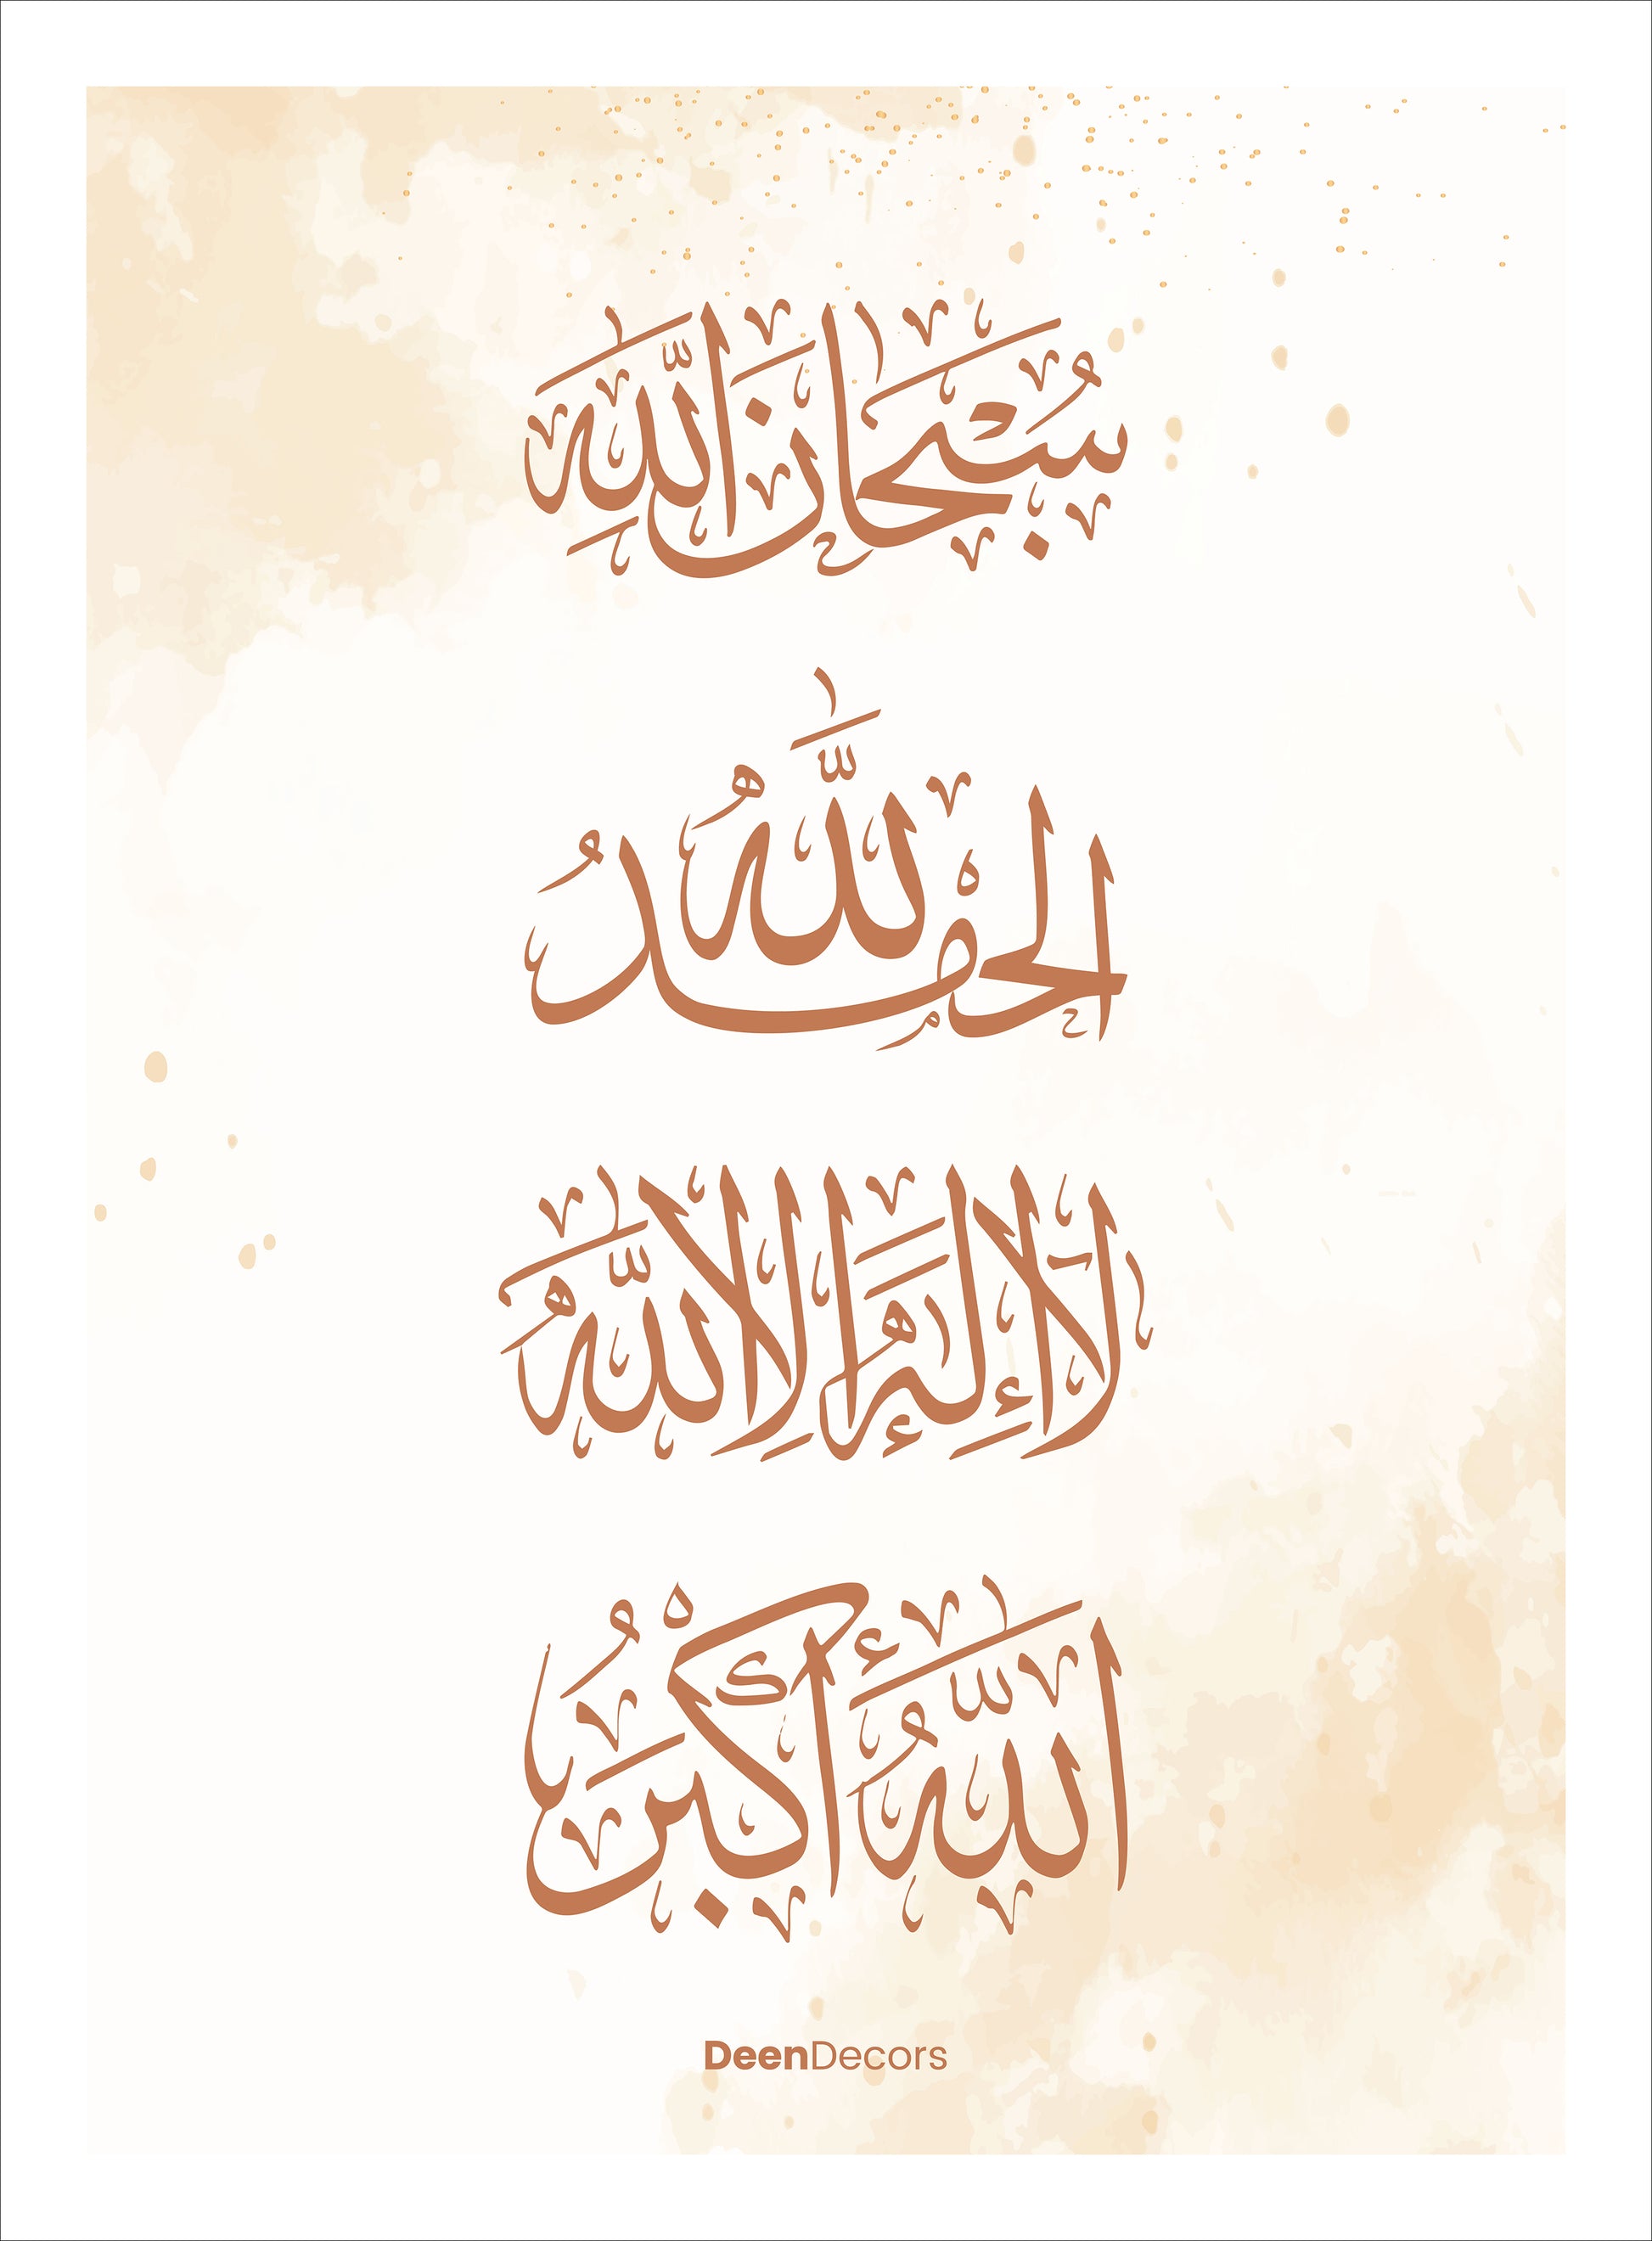 سُبْحَانَ اللَّهِ
الْحَمْدُ لِلَّهِ
لَا إِلَٰهَ إِلَّا اللَّهُ
اللَّهُ أَكْبَرُ
DeenDecors